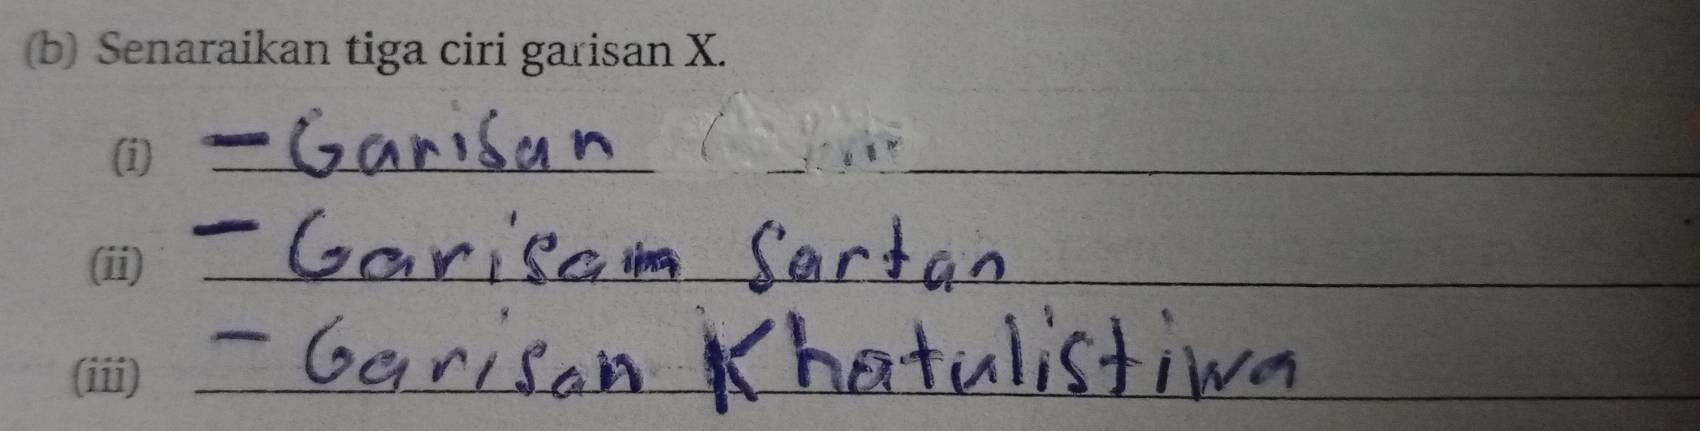 (b) Senaraikan tiga ciri garisan X.
(i) - Garisan
(ii) - Garisan Sartan
(iii) - Garisan Khatulistiwa